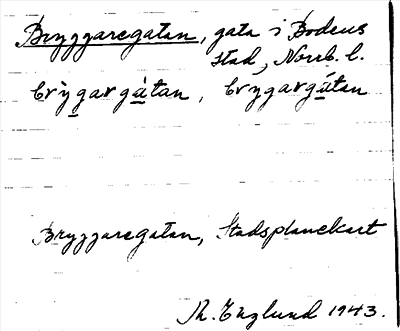 Bryggaregatan, gata i Bodens
stad, Norrb. l.
brỳgargàtan, brygargátan
Bryggaregatan, Stadsplanekart
Th. Englund 1943.